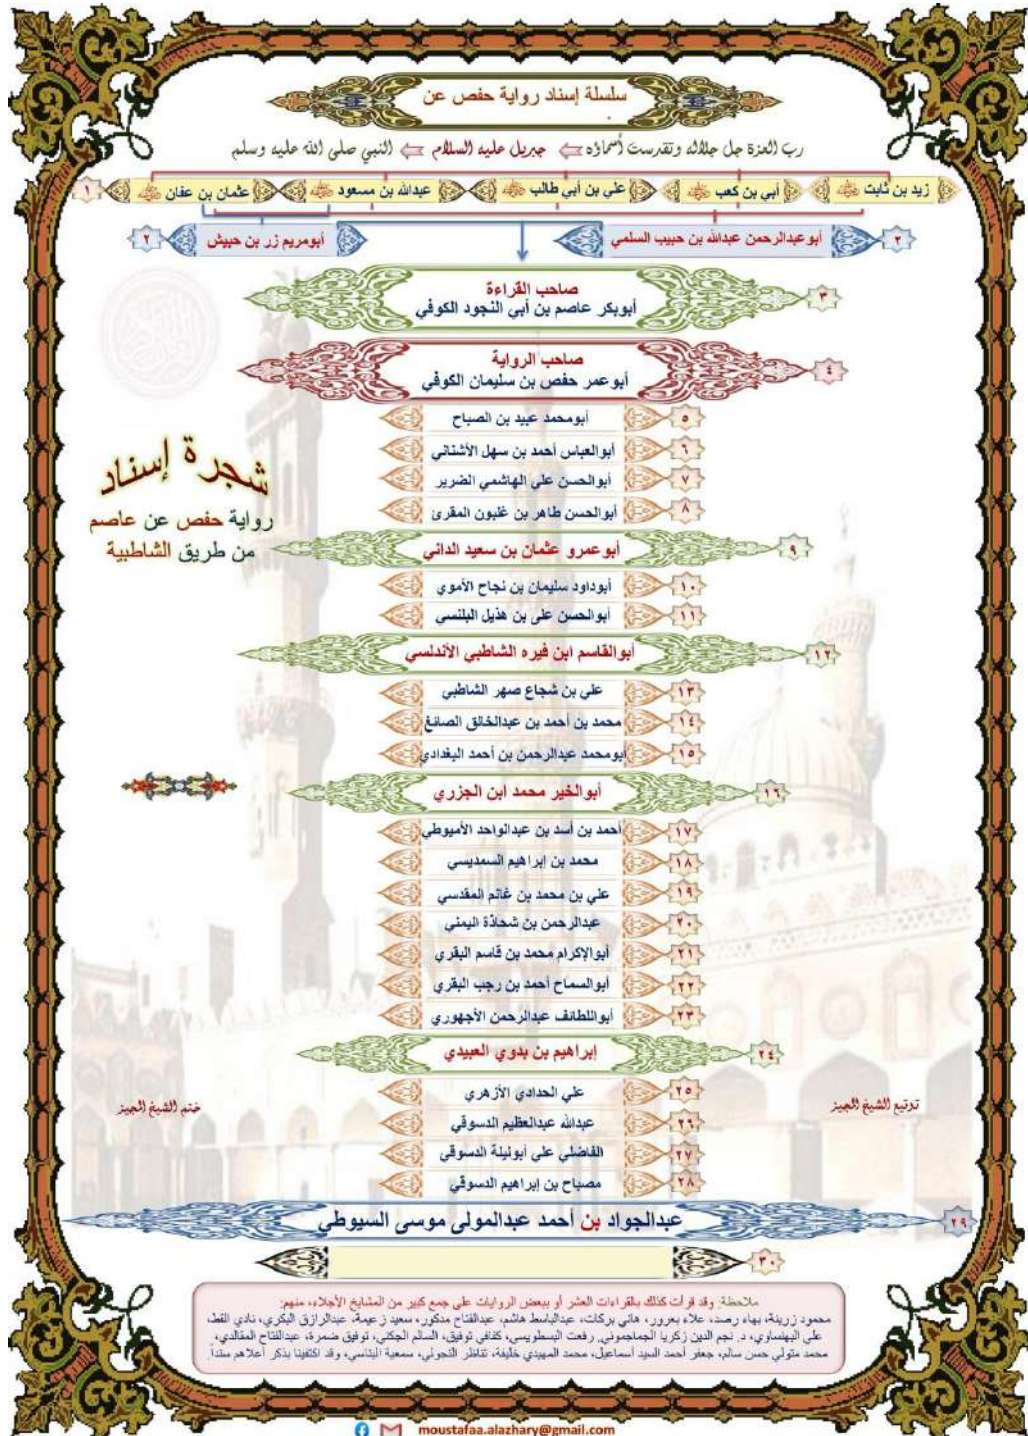 سلسلة إسناد رواية حفص عن
رب العزة جل جلاله وتقدست أسماؤه جبريل عليه السلام النبي صلى الله عليه وسلم
زيد بن ثابت أبي بن كعب علي بن أبي طالب عبدالله بن مسعود عثمان بن عفان ١
٢ أبوعبدالرحمن عبدالله بن حبيب السلمي أبومريم زر بن حبيش ٢
صاحب القراءة
٣ أبوبكر عاصم بن أبي النجود الكوفي
صاحب الرواية
٤ أبوعمر حفص بن سليمان الكوفي
٥ أبومحمد عبيد بن الصباح
٦ أبوالعباس أحمد بن سهل الأشناني
٧ أبوالحسن علي الهاشمي الضرير
٨ أبوالحسن طاهر بن غلبون المقرئ
شجرة إسناد
رواية حفص عن عاصم
من طريق الشاطبية
٩ أبوعمرو عثمان بن سعيد الداني
١٠ أبوداود سليمان بن نجاح الأموي
١١ أبوالحسن على بن هذيل البلنسي
١٢ أبوالقاسم ابن فيره الشاطبي الأندلسي
١٣ علي بن شجاع صهر الشاطبي
١٤ محمد بن أحمد بن عبدالخالق الصائغ
١٥ أبومحمد عبدالرحمن بن أحمد البغدادي
١٦ أبوالخير محمد ابن الجزري
١٧ أحمد بن أسد بن عبدالواحد الأميوطي
١٨ محمد بن إبراهيم السمديسي
١٩ علي بن محمد بن غانم المقدسي
٢٠ عبدالرحمن بن شحاذة اليمني
٢١ أبوالإكرام محمد بن قاسم البقري
٢٢ أبوالسماح أحمد بن رجب البقري
٢٣ أبواللطائف عبدالرحمن الأجهوري
٢٤ إبراهيم بن بدوي العبيدي
٢٥ علي الحدادي الأزهري
توقيع الشيخ المجيز
ختم الشيخ المجيز
٢٦ عبدالله عبدالعظيم الدسوقي
٢٧ الفاضلي على أبوليلة الدسوقي
٢٨ مصباح بن إبراهيم الدسوقي
٢٩ عبدالجواد بن أحمد عبدالمولى موسى السيوطي
٣٠
ملاحظة: وقد قرأت كذلك بالقراءات العشر أو ببعض الروايات على جمع كبير من المشايخ الأجلاء، منهم:
محمود زرينة، بهاء رصد، علاء بعرور، هاني بركات، عبدالباسط هاشم، عبدالفتاح مدكور، سعيد زعيمة، عبدالرازق البكري، نادي القط،
علي البهنساوي، د. نجم الدين زكريا الجماجموني، رفعت البسطويسي، كفافي توفيق، السالم الجكني، توفيق ضمرة، عبدالفتاح
محمد متولي حسن سالم، جعفر أحمد السيد أسماعيل، محمد المهيدي خليفة، تناظر النجولي، سمعية وقد اكتفينا بذكر أعلاهم سنداً.
moustafaa.alazhary@gmail.com